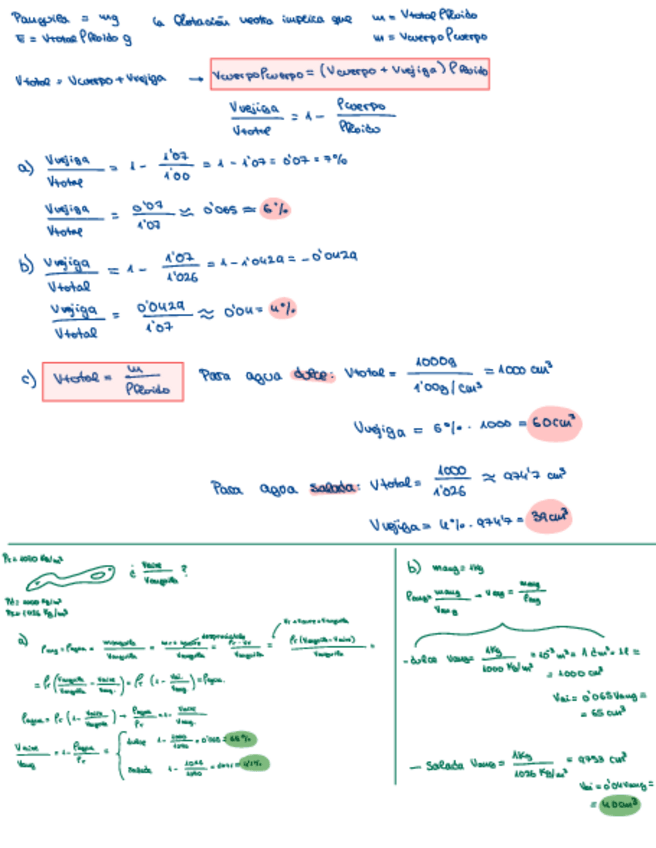 Panguila = mg ↳ flotación neutra implica que m = Vtotal ρfluido
E = Vtotal ρfluido g m = Vcuerpo ρcuerpo
Vtotal = Vcuerpo + Vvejiga → Vcuerpo ρcuerpo = (Vcuerpo + Vvejiga) ρfluido
Vvejiga / Vtotal = 1 - ρcuerpo / ρfluido
a) Vvejiga / Vtotal = 1 - 1'07 / 1'00 = 1 - 1'07 = 0'07 = 7%
Vvejiga / Vtotal = 0'07 / 1'07 ≈ 0'065 ≈ 6%
b) Vvejiga / Vtotal = 1 - 1'07 / 1'026 = 1 - 1'0429 = -0'0429
Vvejiga / Vtotal = 0'0429 / 1'07 ≈ 0'04 = 4%
c) Vtotal = m / ρfluido Para agua dulce: Vtotal = 1000g / 1'00g/cm³ = 1000 cm³
Vvejiga = 6% · 1000 = 60cm³
Para agua salada: Vtotal = 1000 / 1'026 ≈ 974'7 cm³
Vvejiga = 4% · 974'7 = 39cm³
ρr = 1070 Kg/m³
¿ Vaire / Vanguila ?
ρd = 1000 Kg/m³
ρs = 1026 Kg/m³
a) ρang = ρagua = manguila / Vanguila = = = ρr (Vanguila - Vaire) / Vanguila =
despreciable
= ρr (Vanguila / Vanguila - Vaire / Vang.) = ρr (1 - Vai / Vang) = ρagua
ρagua = ρr (1 - Vaire / Vanguila) → ρagua / ρr = 1 - Vaire / Vang.
Vaire / Vang = 1 - ρagua / ρr =
dulce 1 - 1000 / 1070 = 0'065 =
salada 1 - 1026 / 1070 =
b) mang = 1kg
ρang = mang / Vang → Vang = mang / ρang
- dulce Vang = 1Kg / 1000 Kg/m³ = 10⁻³ m³ = 1 dm³ = 1l =
= 1000 cm³
Vai = 0'065 Vang =
= 65 cm³
- Salada Vang = 1Kg / 1026 Kg/m³ = 9753 cm³
Vai = 0'04 Vang =
= 40cm³